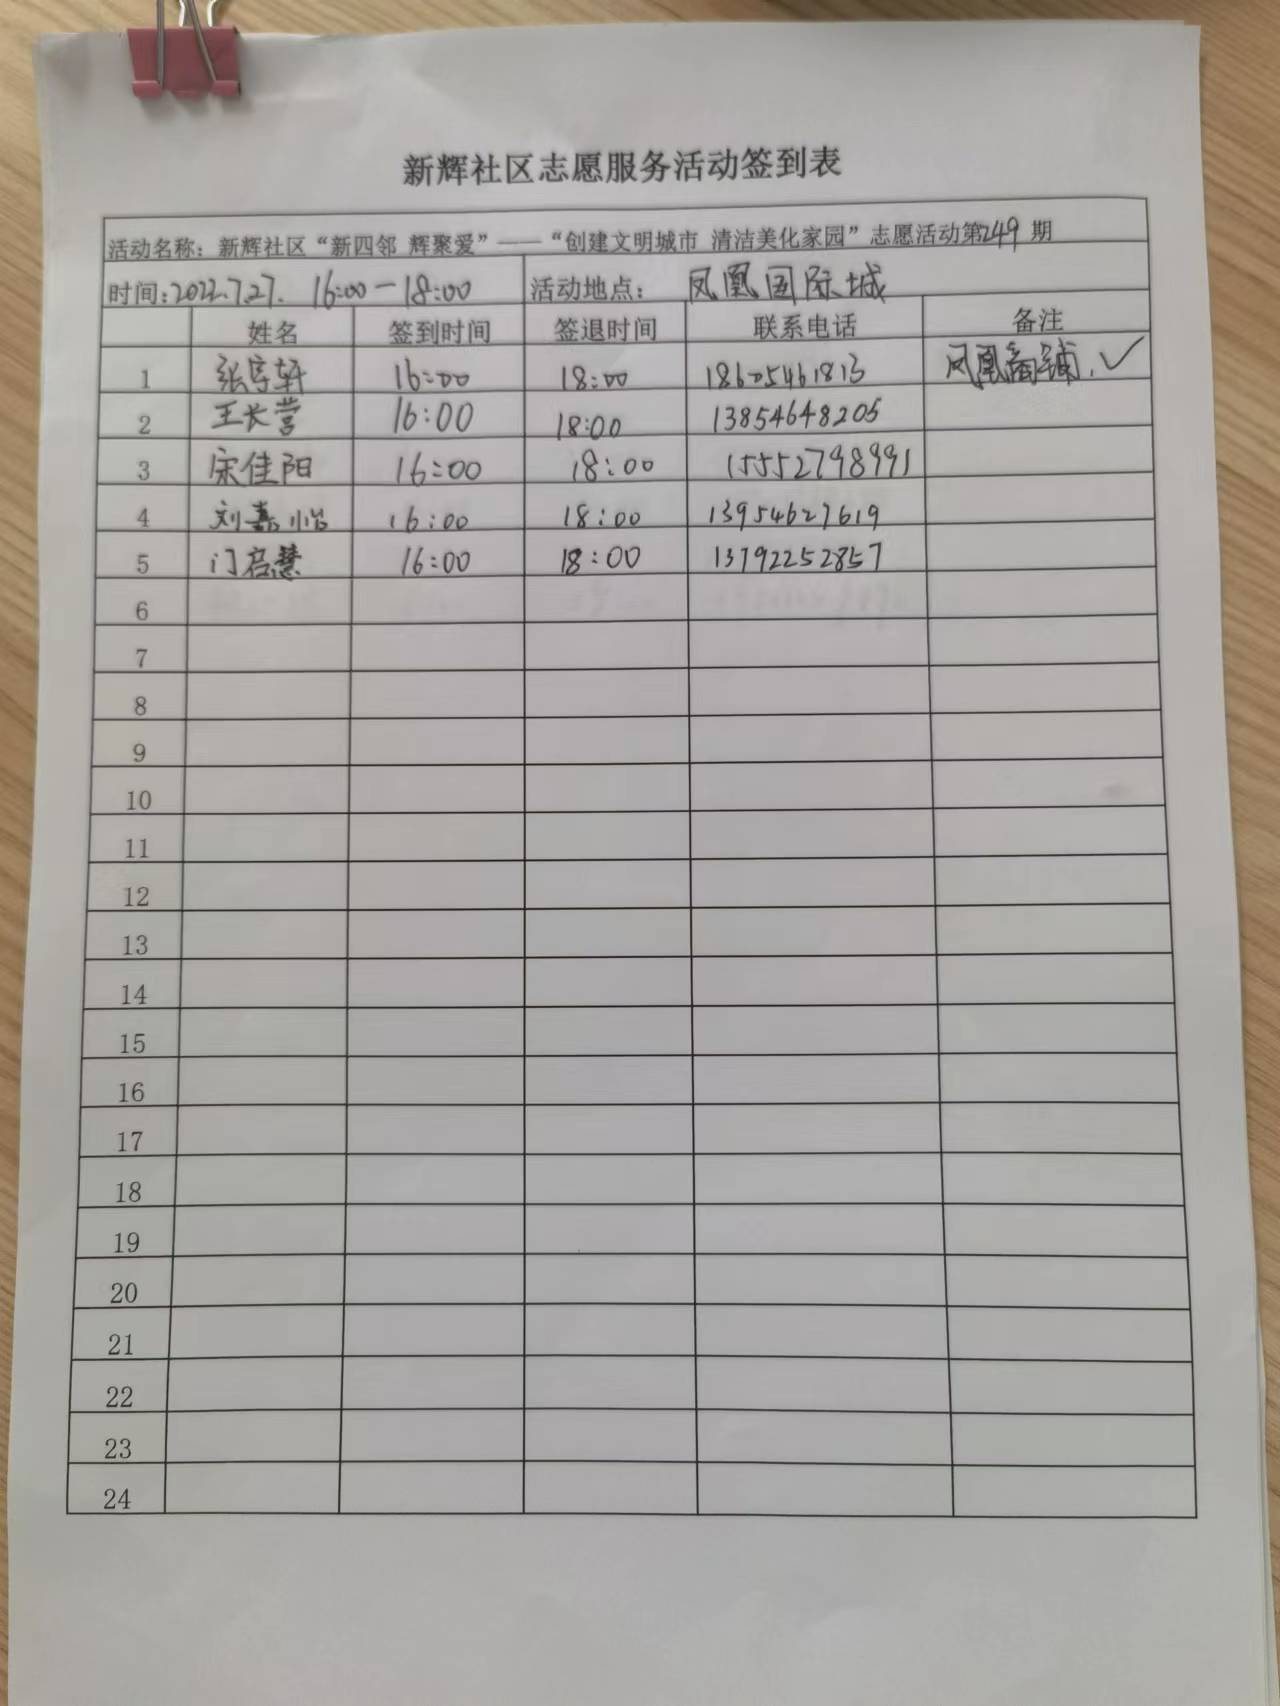 新辉社区志愿服务活动签到表
活动名称：新辉社区“新四邻 辉聚爱”——“创建文明城市 清洁美化家园”志愿活动第249期
时间：2022.7.27. 16:00-18:00 活动地点：凤凰国际城
姓名 签到时间 签退时间 联系电话 备注
1 张宇轩 16:00 18:00 18605461813 凤凰商铺.✓
2 王长营 16:00 18:00 13854648205
3 宋佳阳 16:00 18:00 15552798991
4 刘嘉怡 16:00 18:00 13954627619
5 门启慧 16:00 18:00 13792252857
6
7
8
9
10
11
12
13
14
15
16
17
18
19
20
21
22
23
24